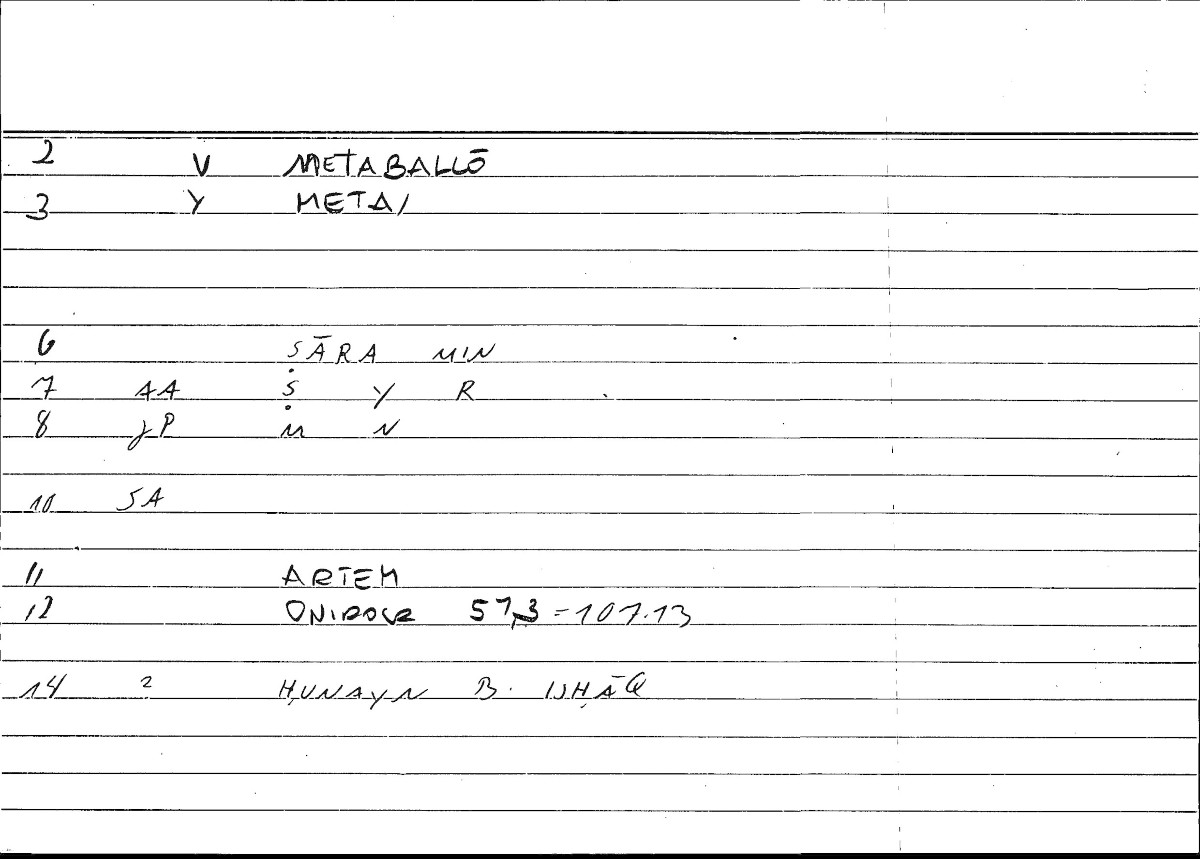 2 V METABALLŌ
3 Y META/
6 ṢĀRA MIN
7 AA Ṣ Y R
8 JP M N
10 SA
11 ARTEM
12 ONIROCR 57,3 = 107.13
14 2 ḤUNAYN B. ISḤĀQ